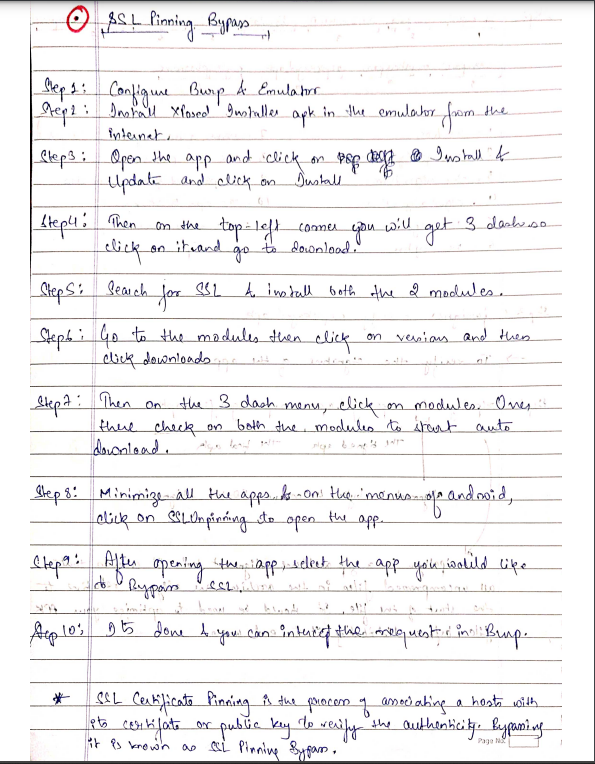 SSL Pinning Bypass
Step 1: Configure Burp & Emulator
Step 2: Install Xposed Installer apk in the emulator from the
internet.
Step3: Open the app and click on Install &
Update and click on Install
Step4: Then on the top-left corner you will get 3 dash so
click on it and go to download.
Step5: Search for SSL & install both the 2 modules.
Step6: Go to the modules then click on versions and then
click downloads
Step7: Then on the 3 dash menu, click on modules. Ones
there check on both the modules to start auto
download.
Step 8: Minimize all the apps & on the menus of android,
click on SSLUnpinning to open the app.
Step9: After opening the app, select the app you would like
to Bypass SSL.
Step 10: Its done & you can intercept the request in Burp.
* SSL Certificate Pinning is the process of associating a hosts with
its certifate or public key to verify the authenticity. Bypassing
it is known as SSL Pinning Bypass.
Page No: